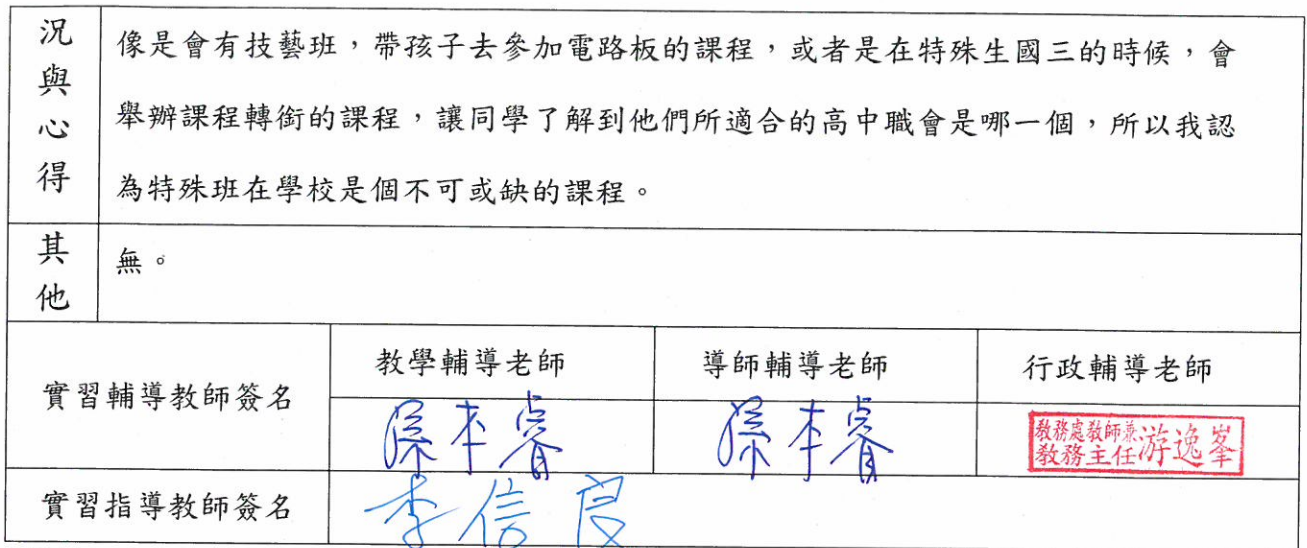 況與心得
像是會有技藝班，帶孩子去參加電路板的課程，或者是在特殊生國三的時候，會
舉辦課程轉銜的課程，讓同學了解到他們所適合的高中職會是哪一個，所以我認
為特殊班在學校是個不可或缺的課程。
其他
無。
實習輔導教師簽名
教學輔導老師
導師輔導老師
行政輔導老師
孫本睿
孫本睿
教務處教師兼
教務主任游逸峯
實習指導教師簽名
李信良